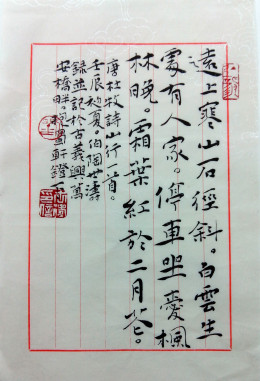 遠上寒山石徑斜。白雲生
處有人家。停車坐愛楓
林晚。霜葉紅於二月花。
唐杜牧詩山行一首。
壬辰初夏。伯陶世濤
錄並記於古義興萬
安橋畔。